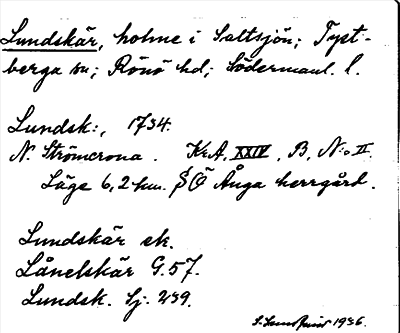 Lundskär, holme i Saltsjön; Tyst-
berga sn; Rönö hd; Södermanl. l.
Lundsk:, 1734.
N. Strömcrona. Kr.A. XXIV, B, N:o II.
Läge 6,2 km. SÖ Ånga herrgård.
Lundskär ek.
Lånelskär G.57.
Lundsk. Sj. 239.
1936.